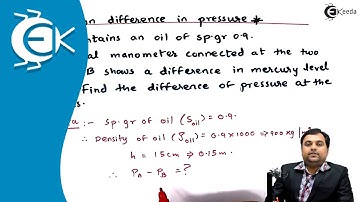 n difference in pressure *
ntains an oil of sp.gr 0.9.
al manometer connected at the two
B shows a difference in mercury level
Find the difference of pressure at the
s.
a :- sp.gr of oil (Soil) = 0.9.
∴ Density of oil (ρoil) = 0.9 × 1000 ⇒ 900 kg/m
h = 15 cm ⇒ 0.15 m.
∴ PA - PB = ?
Ekeeda